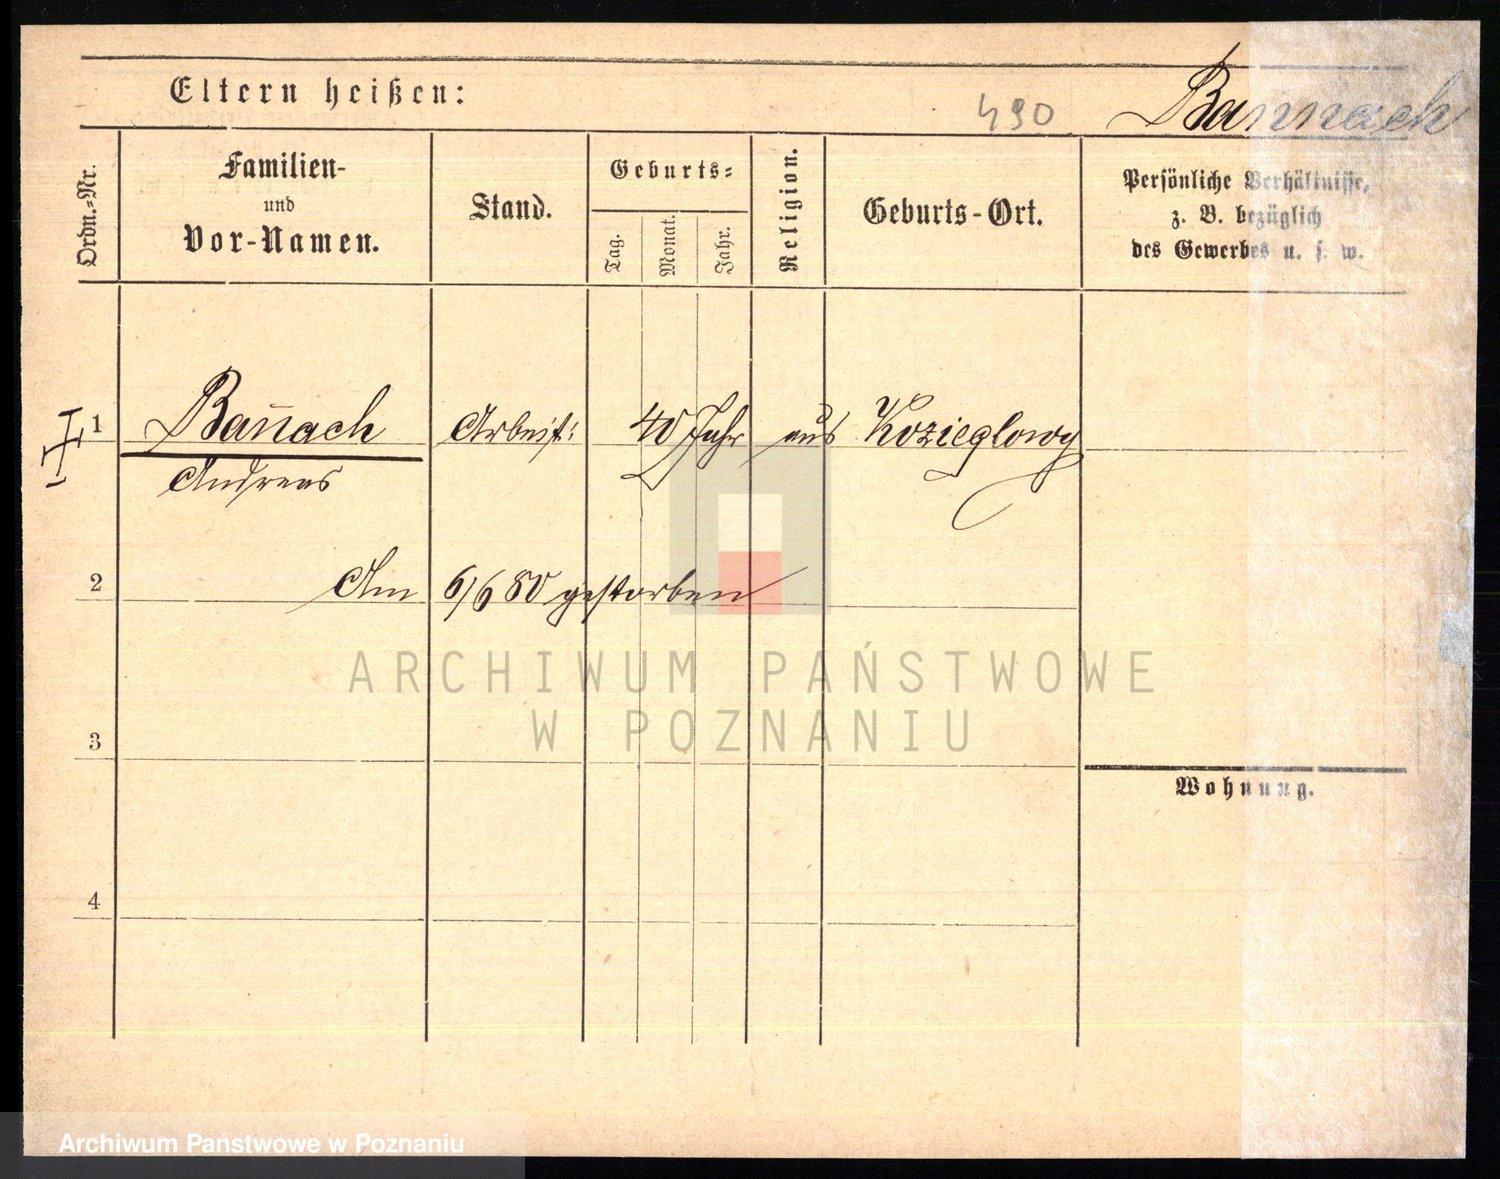 Eltern heißen:
490
Bannach
Ordn.-Nr.
Familien-
und
Vor-Namen.
Stand.
Geburts-
Tag.
Monat.
Jahr.
Religion.
Geburts-Ort.
Persönliche Verhältnisse,
z. B. bezüglich
des Gewerbes u. s. w.
1 Ban̄ach Arbeit: 40 Jahr aus Kozieglowy
Andreas
2 Am 6/6 80 gestorben
ARCHIWUM PAŃSTWOWE
W POZNANIU
3
Wohnung.
4
Archiwum Państwowe w Poznaniu